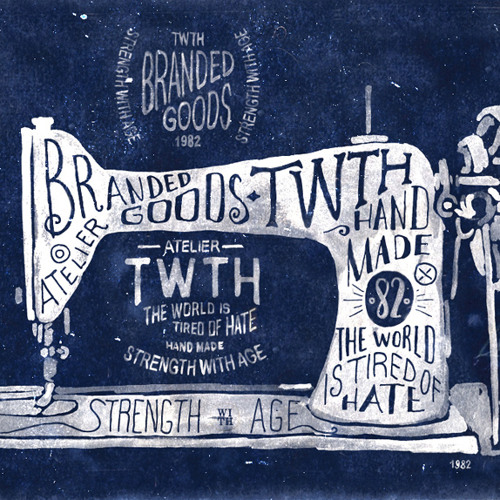 TWTH
BRANDED
GOODS
1982
STRENGTH WITH AGE
STRENGTH WITH AGE
BRANDED
GOODS
TWTH
ATELIER
HAND
MADE
82
THE WORLD
IS TIRED OF
HATE
ATELIER
TWTH
THE WORLD IS
TIRED OF HATE
HAND MADE
STRENGTH WITH AGE
STRENGTH WITH AGE
1982